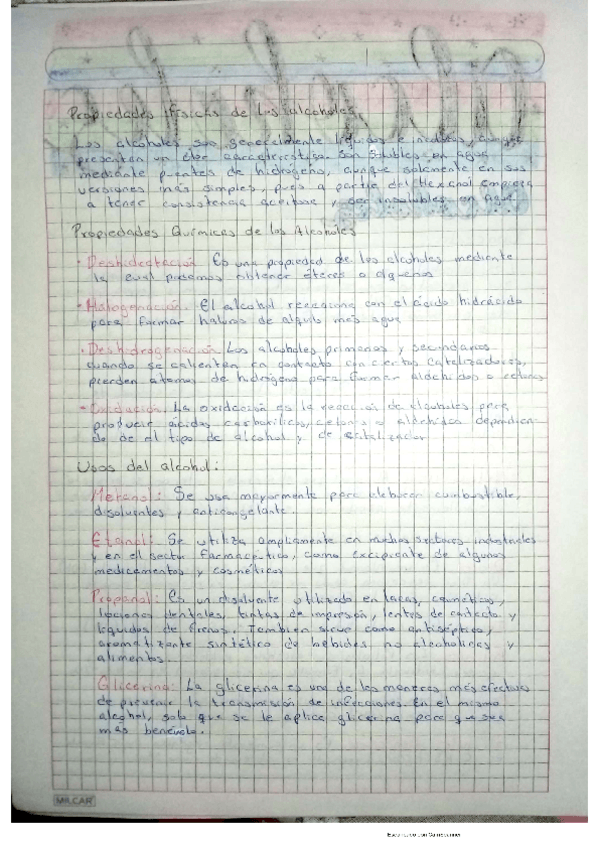 Alcoholes
Propiedades físicas de los alcoholes
Los alcoholes son generalmente líquidos e incoloros, aunque
presentan un olor característico. Son solubles en agua
mediante puentes de hidrógeno, aunque solamente en sus
versiones más simples, pues a partir del Hexanol empieza
a tener consistencia aceitosa y ser insolubles en agua.
Propiedades Químicas de los Alcoholes
· Deshidratación Es una propiedad de los alcoholes mediante
la cual podemos obtener éteres o alquenos
· Halogenación. El alcohol reacciona con el ácido hidrácido
para formar haluros de alquilo más agua
· Deshidrogenación Los alcoholes primarios y secundarios
cuando se calientan en contacto con ciertos catalizadores,
pierden atomos de hidrógeno para formar aldehídos o cetonas
· Oxidación. La oxidación es la reacción de alcoholes para
producir ácidos carboxílicos, cetonas o aldehídos dependien-
do de el tipo de alcohol y de catalizador
Usos del alcohol:
Metanol: Se usa mayormente para elaborar combustible,
disolventes y anticongelante.
Etanol: Se utiliza ampliamente en muchos sectores industriales
y en el sector farmaceutico, como excipiente de algunos
medicamentos y cosméticos
Propanol: Es un disolvente utilizado en lacas, cosméticos,
lociones dentales, tintas de impresión, lentes de contacto y
líquidos de frenos. Tambien sirve como antiséptico,
aromatizante sintético de bebidas no alcoholicas y
alimentos.
Glicerina: La glicerina es una de las maneras más efectivas
de prevenir la transmisión de infecciones. En el mismo
alcohol, solo que se le aplica glicerina para que sea
más benévolo.
MILCAR
Escaneado con CamScanner